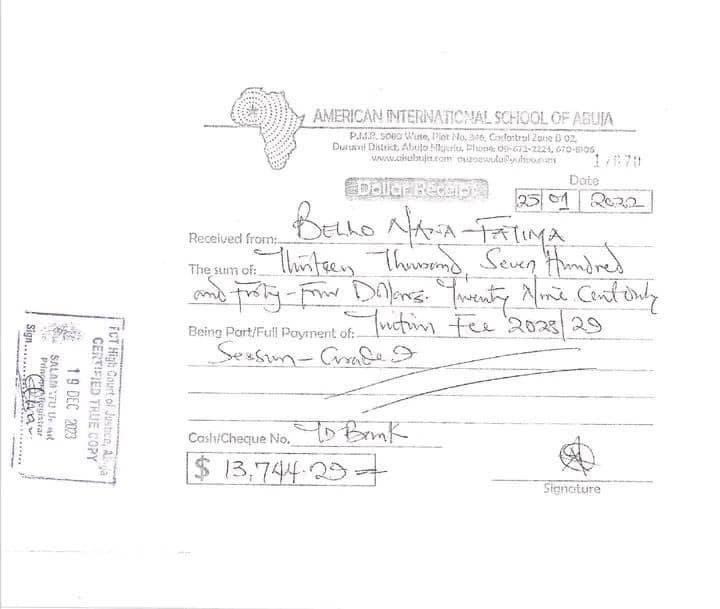 AMERICAN INTERNATIONAL SCHOOL OF ABUJA
P.M.B. 5080 Wuse, Plot No. 346, Cadastral Zone B 02,
Durumi District, Abuja Nigeria. Phone: 09-672-2224, 670-8105
Dollar Receipt
Date
25 01 2022
Received from: BELLO NANA-FATIMA
The sum of: Thirteen Thousand, Seven Hundred
and Forty-Four Dollars. Twenty Nine Cent only
Being Part/Full Payment of: Tuition Fee 2028/29
Session - Grade 9
Cash/Cheque No. TD Bank
$ 13,744.29
Signature
FCT High Court of Justice, Abuja
CERTIFIED TRUE COPY
19 DEC 2023
Principal Registrar
Sign